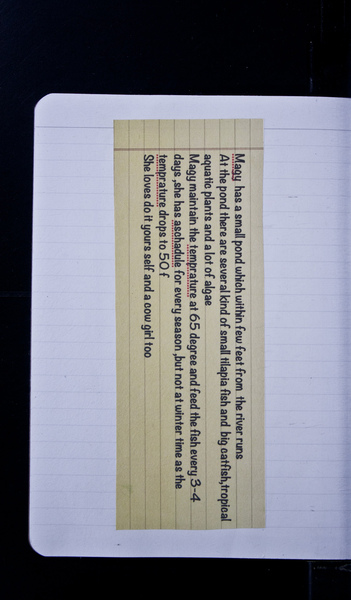 Magy has a small pond which within few feet from the river runs
At the pond there are several kind of small tilapia fish and big catfish,tropical
aquatic plants and a lot of algae
Magy maintain the temprature at 65 degree and feed the fish every 3-4
days ,she has aschadule for every season ,but not at winter time as the
temprature drops to 50 f
She loves do it yours self and a cow girl too